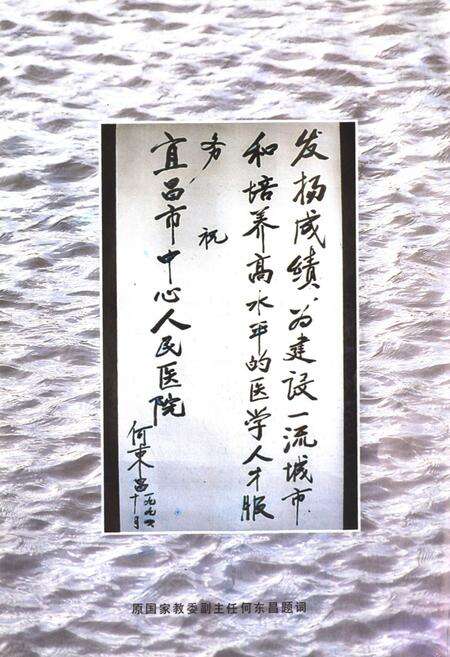 发扬成绩，为建设一流城市
和培养高水平的医学人才服
务 祝
宜昌市中心人民医院
何东昌
一九九六
十月
原国家教委副主任何东昌题词